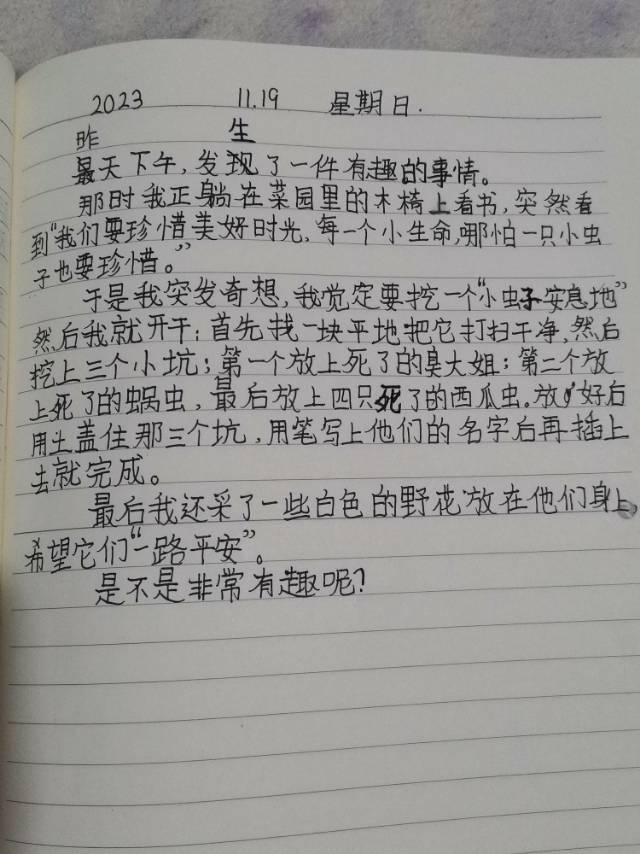 2023 11.19 星期日.
昨 生
最天下午,发现了一件有趣的事情。
那时我正躺在菜园里的木椅上看书,突然看
到“我们要珍惜美好时光,每一个小生命,哪怕一只小虫
子也要珍惜。”
于是我突发奇想,我觉定要挖一个“小虫子安息地”
然后我就开干;首先找一块平地把它打扫干净,然后
挖上三个小坑;第一个放上死了的臭大姐;第二个放
上死了的蜗虫,最后放上四只死了的西瓜虫.放好后
用土盖住那三个坑,用笔写上他们的名字后再插上
去就完成。
最后我还采了一些白色的野花放在他们身上,
希望它们“一路平安”。
是不是非常有趣呢?